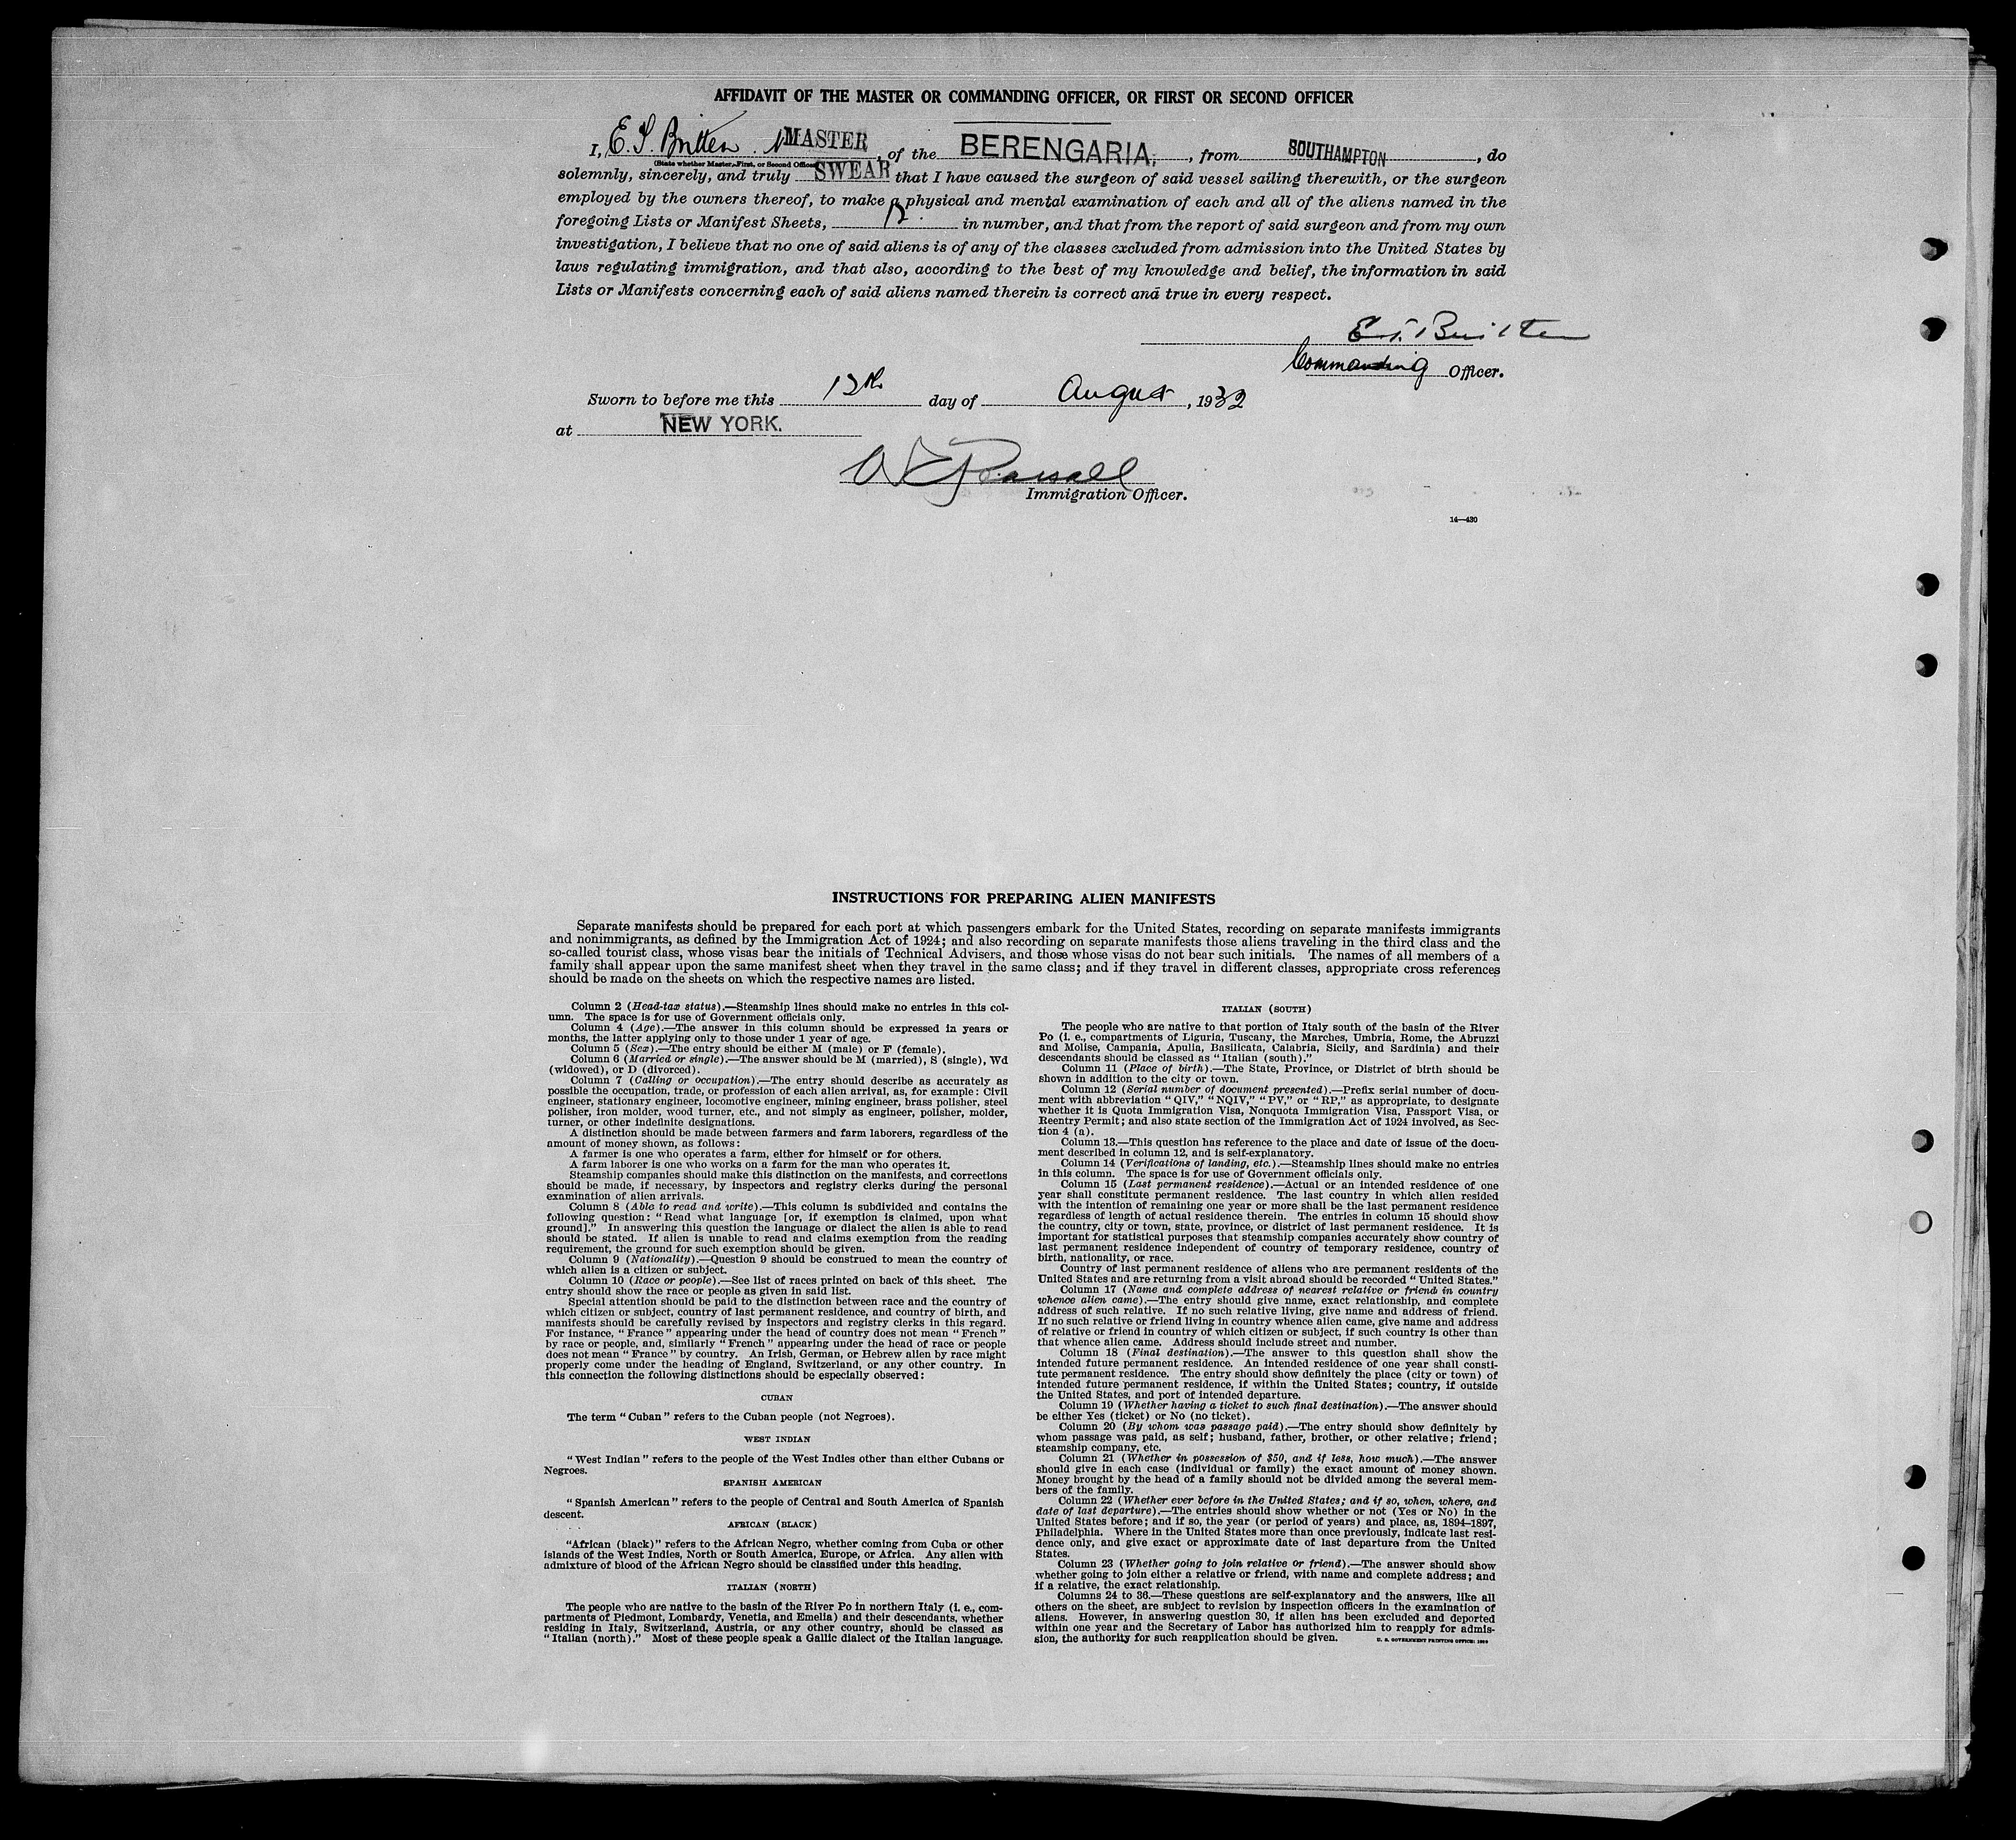 AFFIDAVIT OF THE MASTER OR COMMANDING OFFICER, OR FIRST OR SECOND OFFICER
I, E. T. Britten. MASTER, of the BERENGARIA, from SOUTHAMPTON, do
(State whether Master, First, or Second Officer)
solemnly, sincerely, and truly SWEAR that I have caused the surgeon of said vessel sailing therewith, or the surgeon
employed by the owners thereof, to make a physical and mental examination of each and all of the aliens named in the
foregoing Lists or Manifest Sheets, in number, and that from the report of said surgeon and from my own
investigation, I believe that no one of said aliens is of any of the classes excluded from admission into the United States by
laws regulating immigration, and that also, according to the best of my knowledge and belief, the information in said
Lists or Manifests concerning each of said aliens named therein is correct and true in every respect.
E. T. Britten
Commanding Officer.
Sworn to before me this 12th day of August, 1932
at NEW YORK.
Immigration Officer.
14—430
INSTRUCTIONS FOR PREPARING ALIEN MANIFESTS
Separate manifests should be prepared for each port at which passengers embark for the United States, recording on separate manifests immigrants
and nonimmigrants, as defined by the Immigration Act of 1924; and also recording on separate manifests those aliens traveling in the third class and the
so-called tourist class, whose visas bear the initials of Technical Advisers, and those whose visas do not bear such initials. The names of all members of a
family shall appear upon the same manifest sheet when they travel in the same class; and if they travel in different classes, appropriate cross references
should be made on the sheets on which the respective names are listed.
Column 2 (Head-tax status).—Steamship lines should make no entries in this col-
umn. The space is for use of Government officials only.
Column 4 (Age).—The answer in this column should be expressed in years or
months, the latter applying only to those under 1 year of age.
Column 5 (Sex).—The entry should be either M (male) or F (female).
Column 6 (Married or single).—The answer should be M (married), S (single), Wd
(widowed), or D (divorced).
Column 7 (Calling or occupation).—The entry should describe as accurately as
possible the occupation, trade, or profession of each alien arrival, as, for example: Civil
engineer, stationary engineer, locomotive engineer, mining engineer, brass polisher, steel
polisher, iron molder, wood turner, etc., and not simply as engineer, polisher, molder,
turner, or other indefinite designations.
A distinction should be made between farmers and farm laborers, regardless of the
amount of money shown, as follows:
A farmer is one who operates a farm, either for himself or for others.
A farm laborer is one who works on a farm for the man who operates it.
Steamship companies should make this distinction on the manifests, and corrections
should be made, if necessary, by inspectors and registry clerks during the personal
examination of alien arrivals.
Column 8 (Able to read and write).—This column is subdivided and contains the
following question: "Read what language [or, if exemption is claimed, upon what
ground]." In answering this question the language or dialect the alien is able to read
should be stated. If alien is unable to read and claims exemption from the reading
requirement, the ground for such exemption should be given.
Column 9 (Nationality).—Question 9 should be construed to mean the country of
which alien is a citizen or subject.
Column 10 (Race or people).—See list of races printed on back of this sheet. The
entry should show the race or people as given in said list.
Special attention should be paid to the distinction between race and the country of
which citizen or subject, country of last permanent residence, and country of birth, and
manifests should be carefully revised by inspectors and registry clerks in this regard.
For instance, "France" appearing under the head of country does not mean "French"
by race or people, and, similarly "French" appearing under the head of race or people
does not mean "France" by country. An Irish, German, or Hebrew alien by race might
properly come under the heading of England, Switzerland, or any other country. In
this connection the following distinctions should be especially observed:
CUBAN
The term "Cuban" refers to the Cuban people (not Negroes).
WEST INDIAN
"West Indian" refers to the people of the West Indies other than either Cubans or
Negroes.
SPANISH AMERICAN
"Spanish American" refers to the people of Central and South America of Spanish
descent.
AFRICAN (BLACK)
"African (black)" refers to the African Negro, whether coming from Cuba or other
islands of the West Indies, North or South America, Europe, or Africa. Any alien with
admixture of blood of the African Negro should be classified under this heading.
ITALIAN (NORTH)
The people who are native to the basin of the River Po in northern Italy (i. e., com-
partments of Piedmont, Lombardy, Venetia, and Emelia) and their descendants, whether
residing in Italy, Switzerland, Austria, or any other country, should be classed as
"Italian (north)." Most of these people speak a Gallic dialect of the Italian language.
ITALIAN (SOUTH)
The people who are native to that portion of Italy south of the basin of the River
Po (i. e., compartments of Liguria, Tuscany, the Marches, Umbria, Rome, the Abruzzi
and Molise, Campania, Apulia, Basilicata, Calabria, Sicily, and Sardinia) and their
descendants should be classed as "Italian (south)."
Column 11 (Place of birth).—The State, Province, or District of birth should be
shown in addition to the city or town.
Column 12 (Serial number of document presented).—Prefix serial number of docu-
ment with abbreviation "QIV," "NQIV," "PV," or "RP," as appropriate, to designate
whether it is Quota Immigration Visa, Nonquota Immigration Visa, Passport Visa, or
Reentry Permit; and also state section of the Immigration Act of 1924 involved, as Sec-
tion 4 (a).
Column 13.—This question has reference to the place and date of issue of the docu-
ment described in column 12, and is self-explanatory.
Column 14 (Verifications of landing, etc.).—Steamship lines should make no entries
in this column. The space is for use of Government officials only.
Column 15 (Last permanent residence).—Actual or an intended residence of one
year shall constitute permanent residence. The last country in which alien resided
with the intention of remaining one year or more shall be the last permanent residence
regardless of length of actual residence therein. The entries in column 15 should show
the country, city or town, state, province, or district of last permanent residence. It is
important for statistical purposes that steamship companies accurately show country of
last permanent residence independent of country of temporary residence, country of
birth, nationality, or race.
Country of last permanent residence of aliens who are permanent residents of the
United States and are returning from a visit abroad should be recorded "United States."
Column 17 (Name and complete address of nearest relative or friend in country
whence alien came).—The entry should give name, exact relationship, and complete
address of such relative. If no such relative living, give name and address of friend.
If no such relative or friend living in country whence alien came, give name and address
of relative or friend in country of which citizen or subject, if such country is other than
that whence alien came. Address should include street and number.
Column 18 (Final destination).—The answer to this question shall show the
intended future permanent residence. An intended residence of one year shall consti-
tute permanent residence. The entry should show definitely the place (city or town) of
intended future permanent residence, if within the United States; country, if outside
the United States, and port of intended departure.
Column 19 (Whether having a ticket to such final destination).—The answer should
be either Yes (ticket) or No (no ticket).
Column 20 (By whom was passage paid).—The entry should show definitely by
whom passage was paid, as self; husband, father, brother, or other relative; friend;
steamship company, etc.
Column 21 (Whether in possession of $50, and if less, how much).—The answer
should give in each case (individual or family) the exact amount of money shown.
Money brought by the head of a family should not be divided among the several mem-
bers of the family.
Column 22 (Whether ever before in the United States; and if so, when, where, and
date of last departure).—The entries should show whether or not (Yes or No) in the
United States before; and if so, the year (or period of years) and place, as, 1894–1897,
Philadelphia. Where in the United States more than once previously, indicate last resi-
dence only, and give exact or approximate date of last departure from the United
States.
Column 23 (Whether going to join relative or friend).—The answer should show
whether going to join either a relative or friend, with name and complete address; and
if a relative, the exact relationship.
Columns 24 to 36.—These questions are self-explanatory and the answers, like all
others on the sheet, are subject to revision by inspection officers in the examination of
aliens. However, in answering question 30, if alien has been excluded and deported
within one year and the Secretary of Labor has authorized him to reapply for admis-
sion, the authority for such reapplication should be given. U. S. GOVERNMENT PRINTING OFFICE: